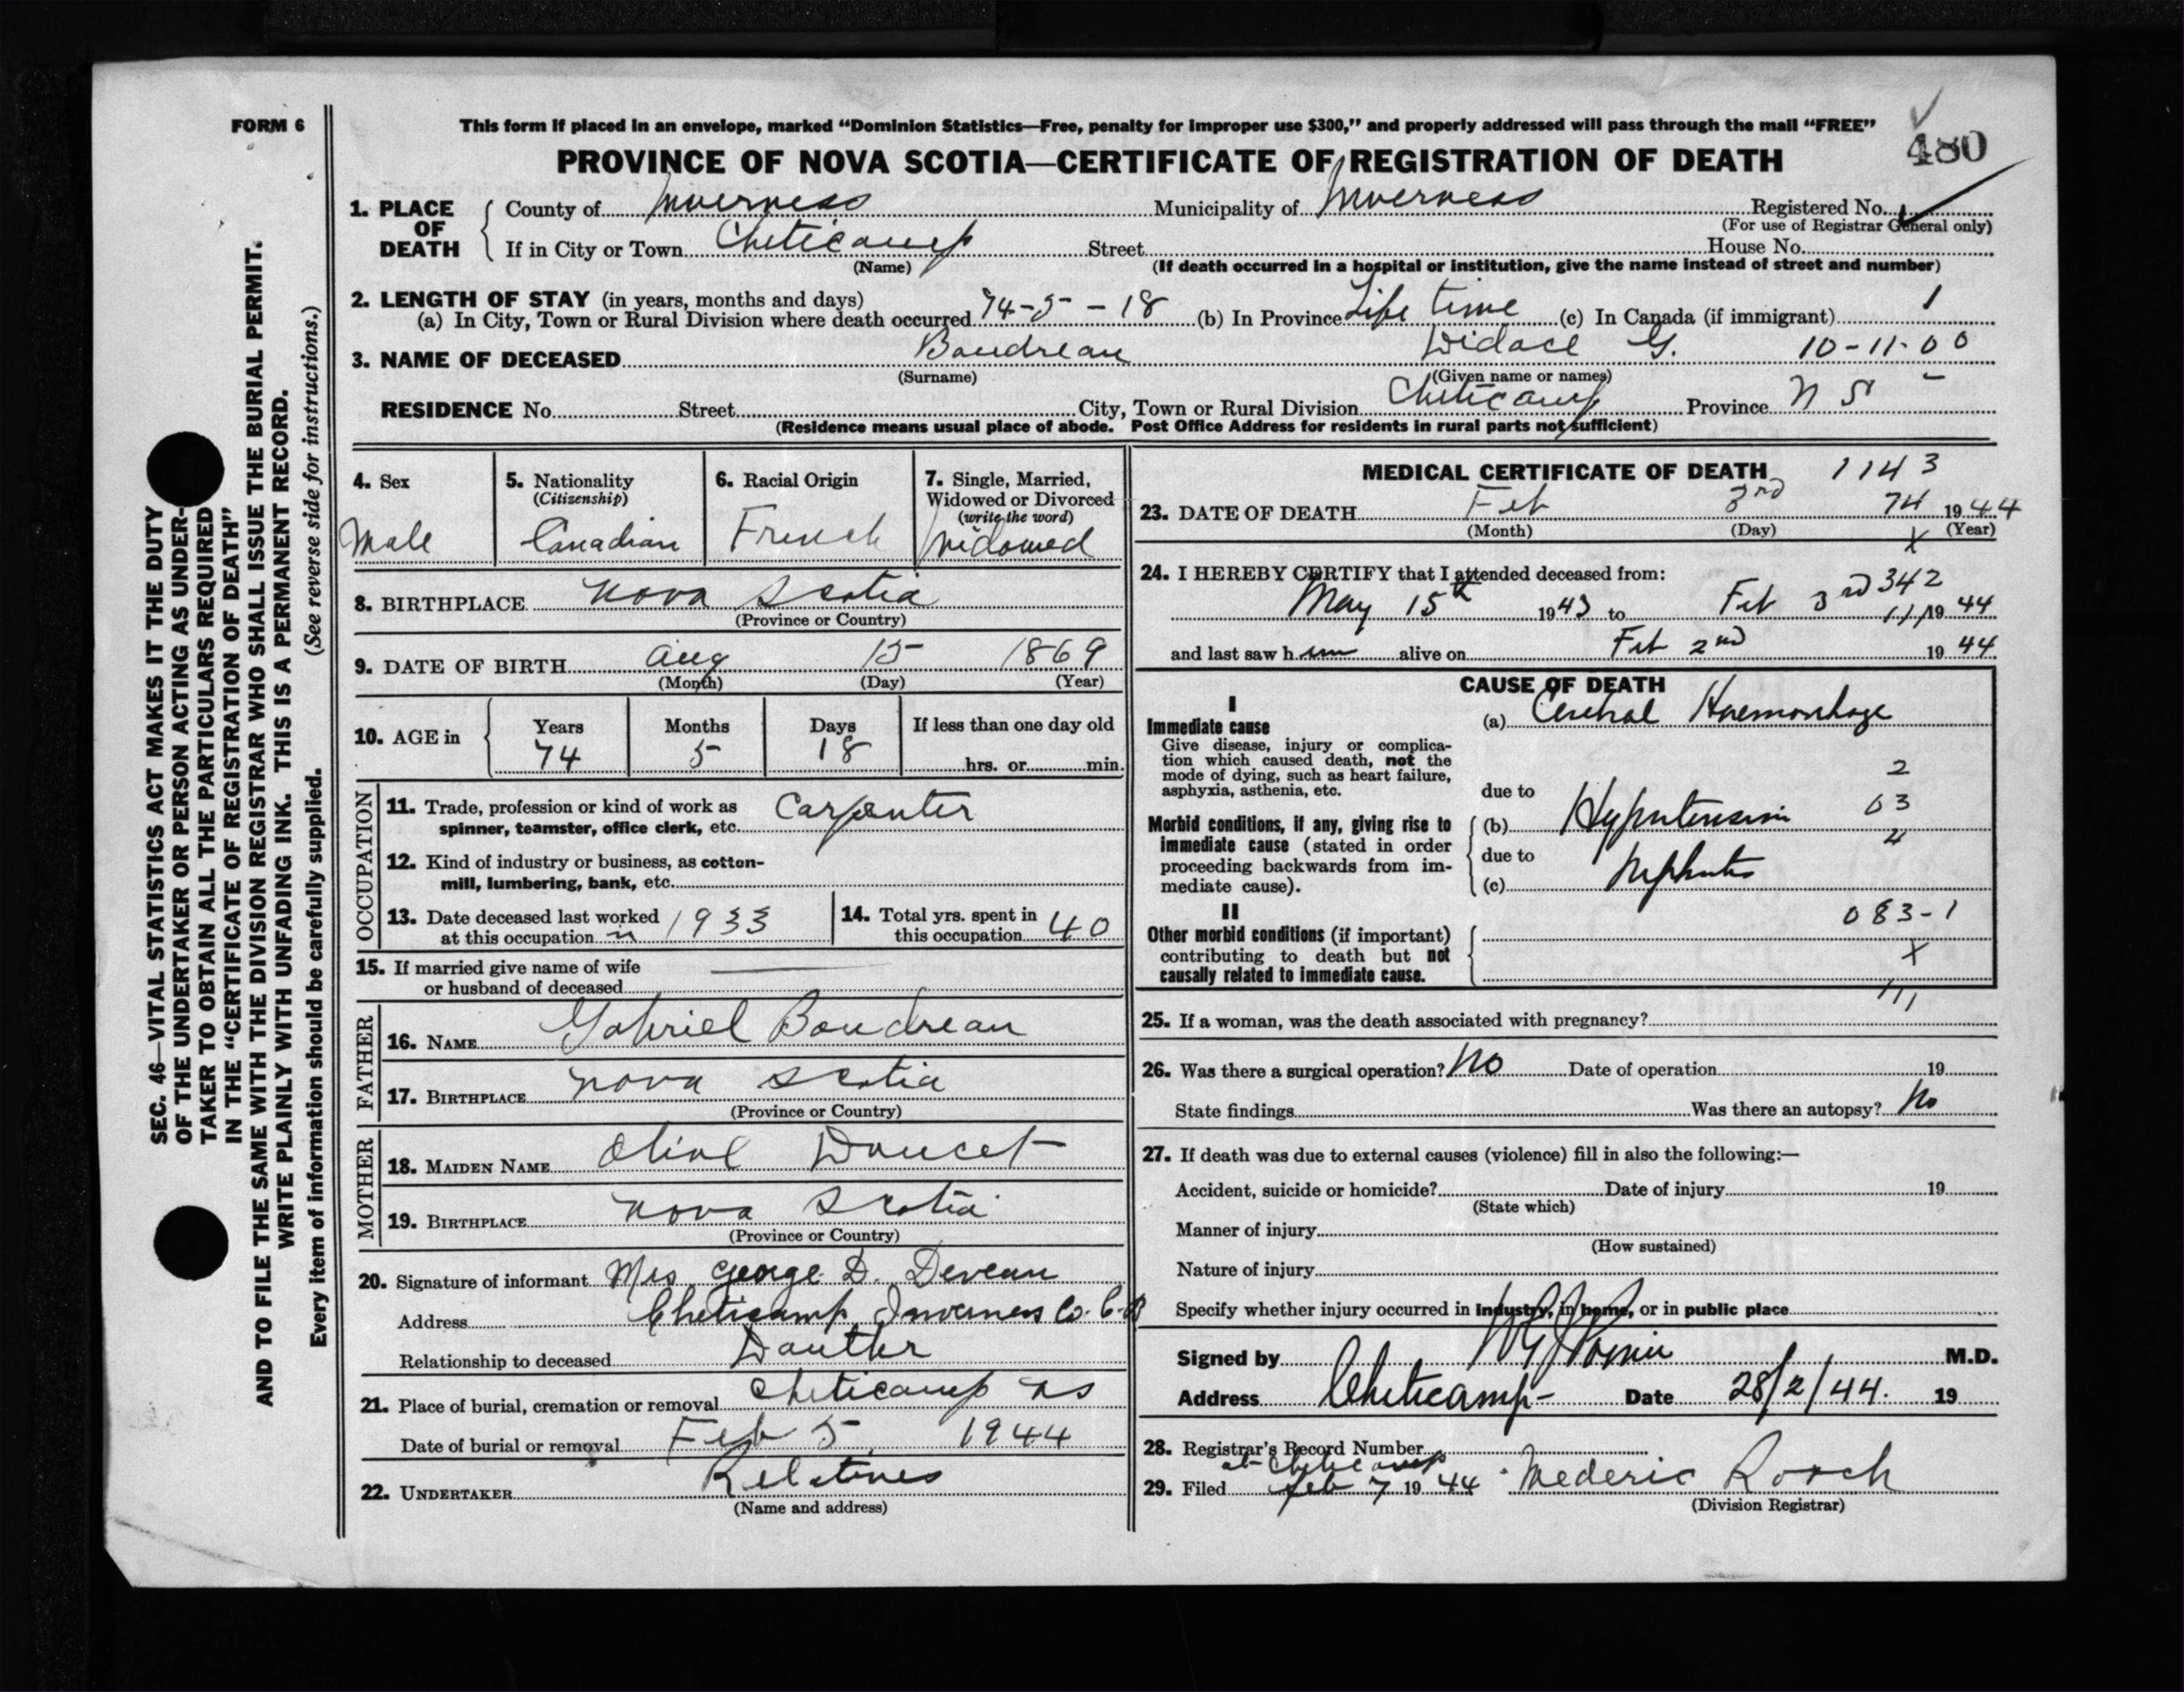 FORM 6
This form if placed in an envelope, marked "Dominion Statistics—Free, penalty for improper use $300," and properly addressed will pass through the mail "FREE"
PROVINCE OF NOVA SCOTIA—CERTIFICATE OF REGISTRATION OF DEATH
480
1. PLACE OF DEATH
County of Inverness Municipality of Inverness Registered No.
(For use of Registrar General only)
If in City or Town Cheticamp Street House No.
(Name) (If death occurred in a hospital or institution, give the name instead of street and number)
2. LENGTH OF STAY (in years, months and days)
(a) In City, Town or Rural Division where death occurred 74-5-18 (b) In Province Life time (c) In Canada (if immigrant) 1
3. NAME OF DECEASED Boudreau Didace G. 10-11-00
(Surname) (Given name or names)
RESIDENCE No. Street City, Town or Rural Division Cheticamp Province N S -
(Residence means usual place of abode. Post Office Address for residents in rural parts not sufficient)
4. Sex
Male
5. Nationality
(Citizenship)
Canadian
6. Racial Origin
French
7. Single, Married,
Widowed or Divorced
(write the word)
Widowed
8. BIRTHPLACE Nova Scotia
(Province or Country)
9. DATE OF BIRTH Aug 15 1869
(Month) (Day) (Year)
10. AGE in
Years Months Days If less than one day old
74 5 18 hrs. or min.
OCCUPATION
11. Trade, profession or kind of work as
spinner, teamster, office clerk, etc. Carpenter
12. Kind of industry or business, as cotton-
mill, lumbering, bank, etc.
13. Date deceased last worked
at this occupation in 1933
14. Total yrs. spent in
this occupation 40
15. If married give name of wife
or husband of deceased
FATHER
16. NAME Gabriel Boudreau
17. BIRTHPLACE Nova Scotia
(Province or Country)
MOTHER
18. MAIDEN NAME Olive Doucet
19. BIRTHPLACE Nova Scotia
(Province or Country)
20. Signature of informant Mrs George D. Deveau
Address Cheticamp Inverness Co. C.B
Relationship to deceased Dauther
21. Place of burial, cremation or removal Cheticamp NS
Date of burial or removal Feb 5, 1944
22. UNDERTAKER Relatives
(Name and address)
MEDICAL CERTIFICATE OF DEATH 1143
23. DATE OF DEATH Feb 3rd 74 1944
(Month) (Day) (Year)
X
24. I HEREBY CERTIFY that I attended deceased from:
342
May 15th 1943 to Feb 3rd 1944
and last saw him alive on Feb 2nd 1944
CAUSE OF DEATH
I
Immediate cause
Give disease, injury or complica-
tion which caused death, not the
mode of dying, such as heart failure,
asphyxia, asthenia, etc.
(a) Cerebral Haemorrhage
2
due to
03
Morbid conditions, if any, giving rise to
immediate cause (stated in order
proceeding backwards from im-
mediate cause).
(b) Hypertension
4
due to
(c) Nephritis
II
083-1
Other morbid conditions (if important)
contributing to death but not
causally related to immediate cause.
X
25. If a woman, was the death associated with pregnancy?
26. Was there a surgical operation? No Date of operation 19
State findings Was there an autopsy? No
27. If death was due to external causes (violence) fill in also the following:—
Accident, suicide or homicide? Date of injury 19
(State which)
Manner of injury
(How sustained)
Nature of injury
Specify whether injury occurred in industry, in home, or in public place
Signed by M.D.
Address Cheticamp- Date 28/2/44. 19
28. Registrar's Record Number
at Cheticamp
29. Filed Feb 7 1944 Mederic Roach
(Division Registrar)
SEC. 46—VITAL STATISTICS ACT MAKES IT THE DUTY
OF THE UNDERTAKER OR PERSON ACTING AS UNDER-
TAKER TO OBTAIN ALL THE PARTICULARS REQUIRED
IN THE "CERTIFICATE OF REGISTRATION OF DEATH"
AND TO FILE THE SAME WITH THE DIVISION REGISTRAR WHO SHALL ISSUE THE BURIAL PERMIT.
WRITE PLAINLY WITH UNFADING INK. THIS IS A PERMANENT RECORD.
Every item of information should be carefully supplied. (See reverse side for instructions.)